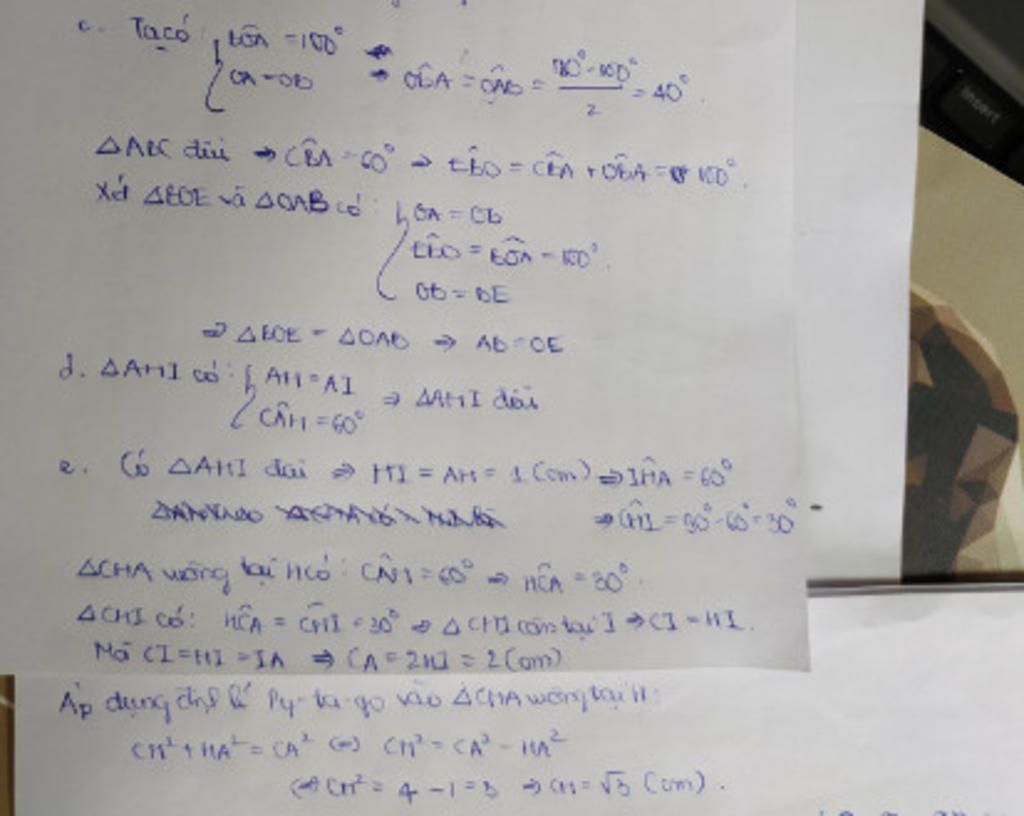 c. Ta có { BÔA = 100°
OA = OB → OB̂A = OÂB = (180° - 100°)/2 = 40°.
△ABC đều → CB̂A = 60° → EB̂O = CB̂A + OB̂A = 100°.
Xét △BOE và △OAB có: { OA = OB
EB̂O = BÔA = 100°.
OB = BE
⇒ △BOE = △OAB → AB = OE
d. △AHI có: { AH = AI
CÂH = 60° ⇒ △AHI đều
e. Có △AHI đều ⇒ HI = AH = 1 (cm) ⇒ IĤA = 60°
⇒ CĤI = 90° - 60° = 30°
△CHA vuông tại H có: CÂH = 60° ⇒ HĈA = 30°.
△CHI có: HĈA = CĤI = 30° ⇒ △CHI cân tại I ⇒ CI = HI.
Mà CI = HI = IA ⇒ CA = 2HI = 2 (cm)
Áp dụng định lí Py-ta-go vào △CHA vuông tại H:
CH² + HA² = CA² (=) CH² = CA² - HA²
(=) CH² = 4 - 1 = 3 ⇒ CH = √3 (cm).
insert